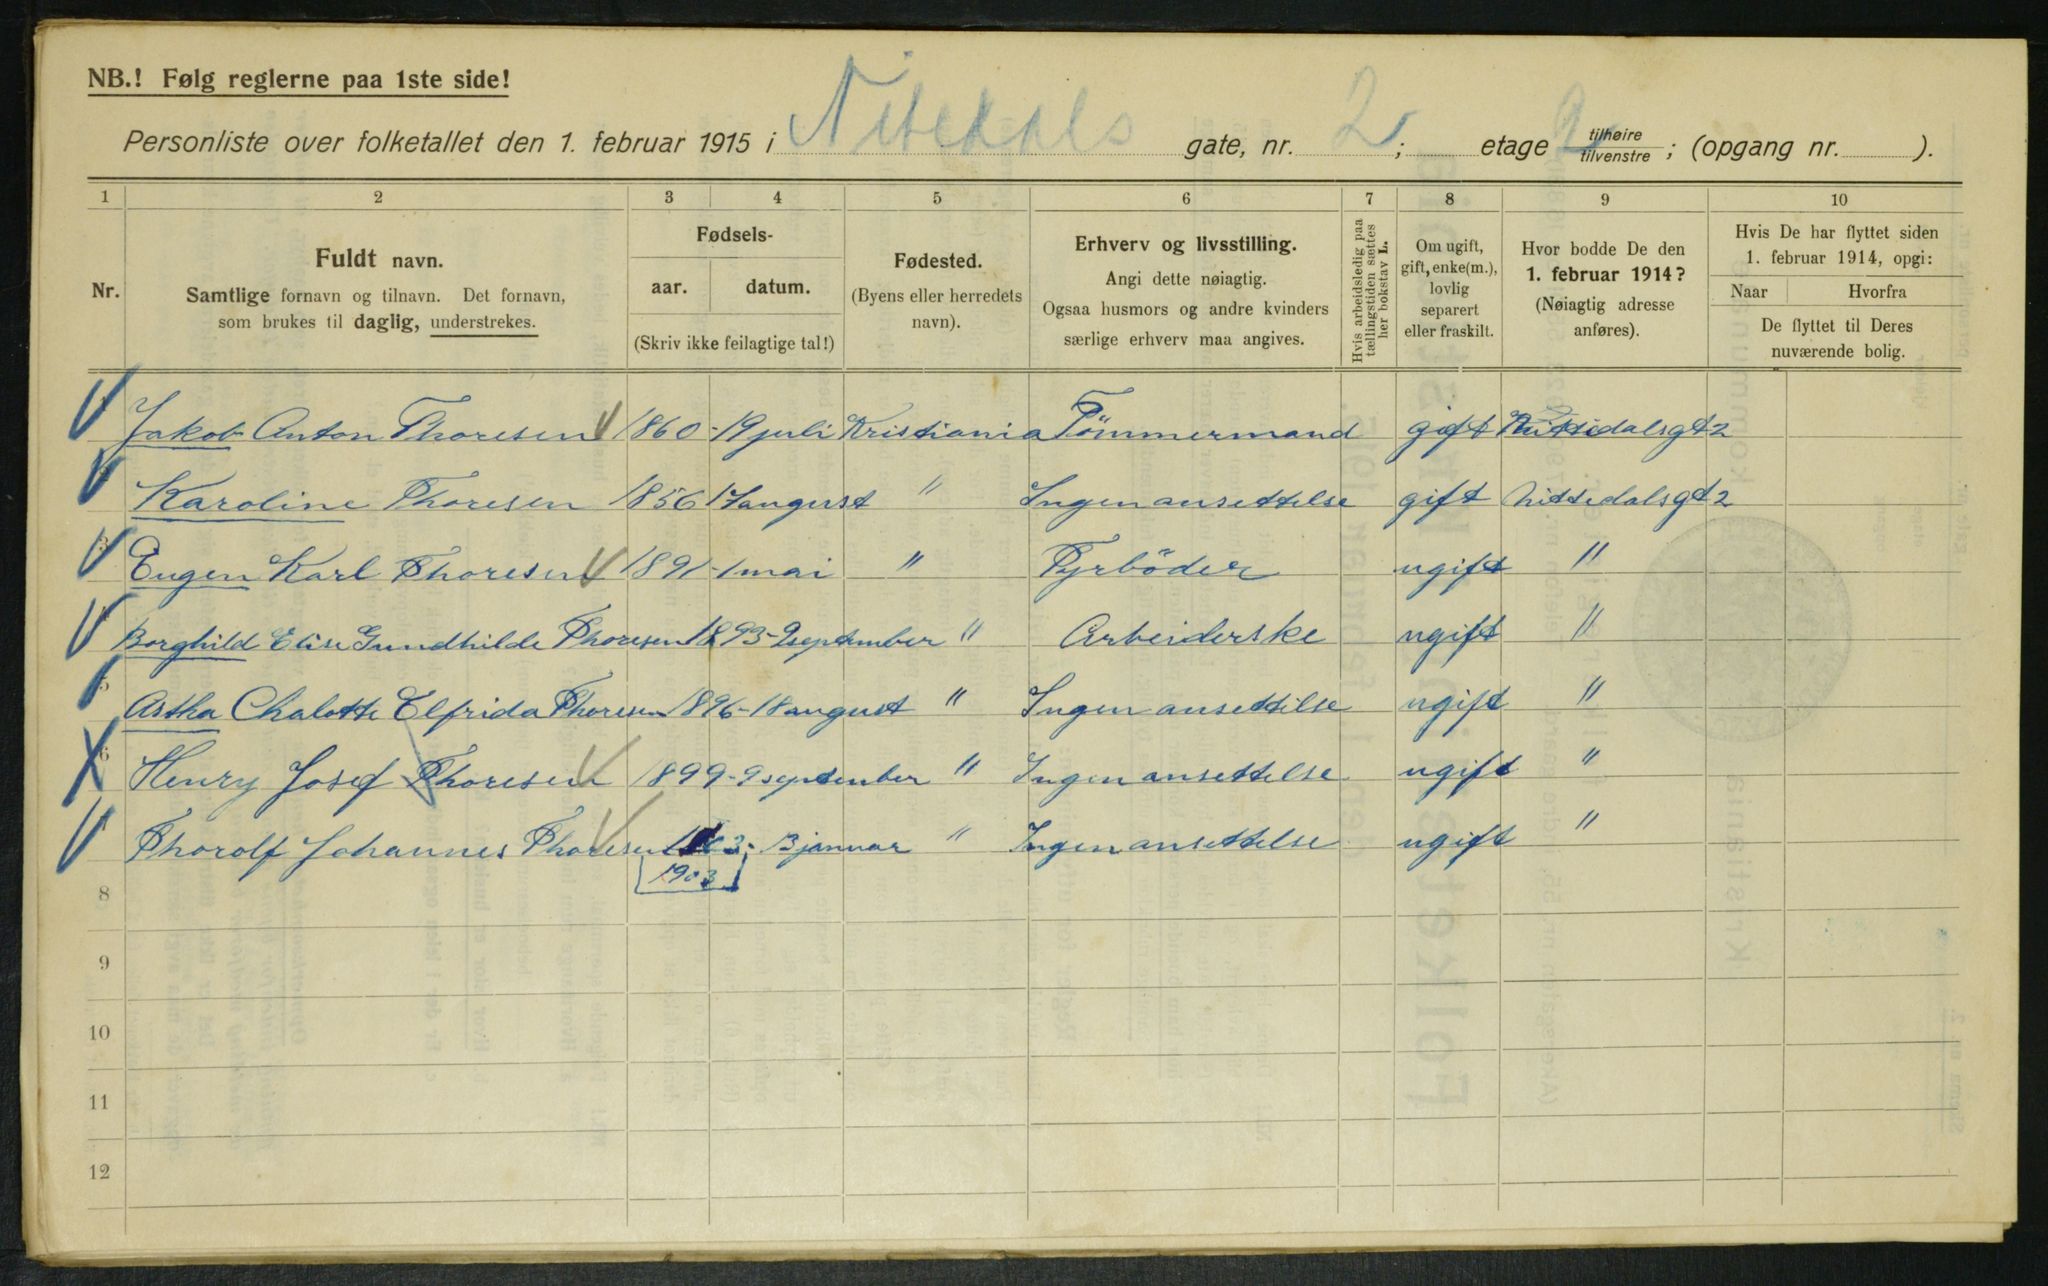 NB.! Følg reglerne paa 1ste side!
Personliste over folketallet den 1. februar 1915 i Nitedals gate, nr. 2; etage 2 tilhøire tilvenstre; (opgang nr. ).
1 2 3 4 5 6 7 8 9 10
Nr.
Fuldt navn.
Samtlige fornavn og tilnavn. Det fornavn,
som brukes til daglig, understrekes.
Fødsels-
aar. datum.
(Skriv ikke feilagtige tal!)
Fødested.
(Byens eller herredets
navn).
Erhverv og livsstilling.
Angi dette nøiagtig.
Ogsaa husmors og andre kvinders
særlige erhverv maa angives.
Hvis arbeidsledig paa
tællingstiden sættes
her bokstav L.
Om ugift,
gift, enke(m.),
lovlig
separert
eller fraskilt.
Hvor bodde De den
1. februar 1914?
(Nøiagtig adresse
anføres).
Hvis De har flyttet siden
1. februar 1914, opgi:
Naar Hvorfra
De flyttet til Deres
nuværende bolig.
Jakob Anton Thoresen 1860 - 19 juli Kristiania Tömmermand gift Nittedalsgt 2
Karoline Thoresen 1856 17 august " Ingen ansettelse gift Nittedalsgt 2
3 Eugen Karl Thoresen 1891 - 1 mai " Fyrböder ugift "
Borghild Elise Gundhilde Thoresen 1893 - 2 september " Arbeiderske ugift "
5 Astha Chalotte Elfrida Thoresen 1896 - 18 august " Ingen ansettilse ugift "
6 Henry Josef Thoresen 1899 - 9 september " Ingen ansettelse ugift "
Thorolf Johannes Thoresen 3 - 13 januar " Ingen ansettelse ugift "
1903
8
9
10
11
12